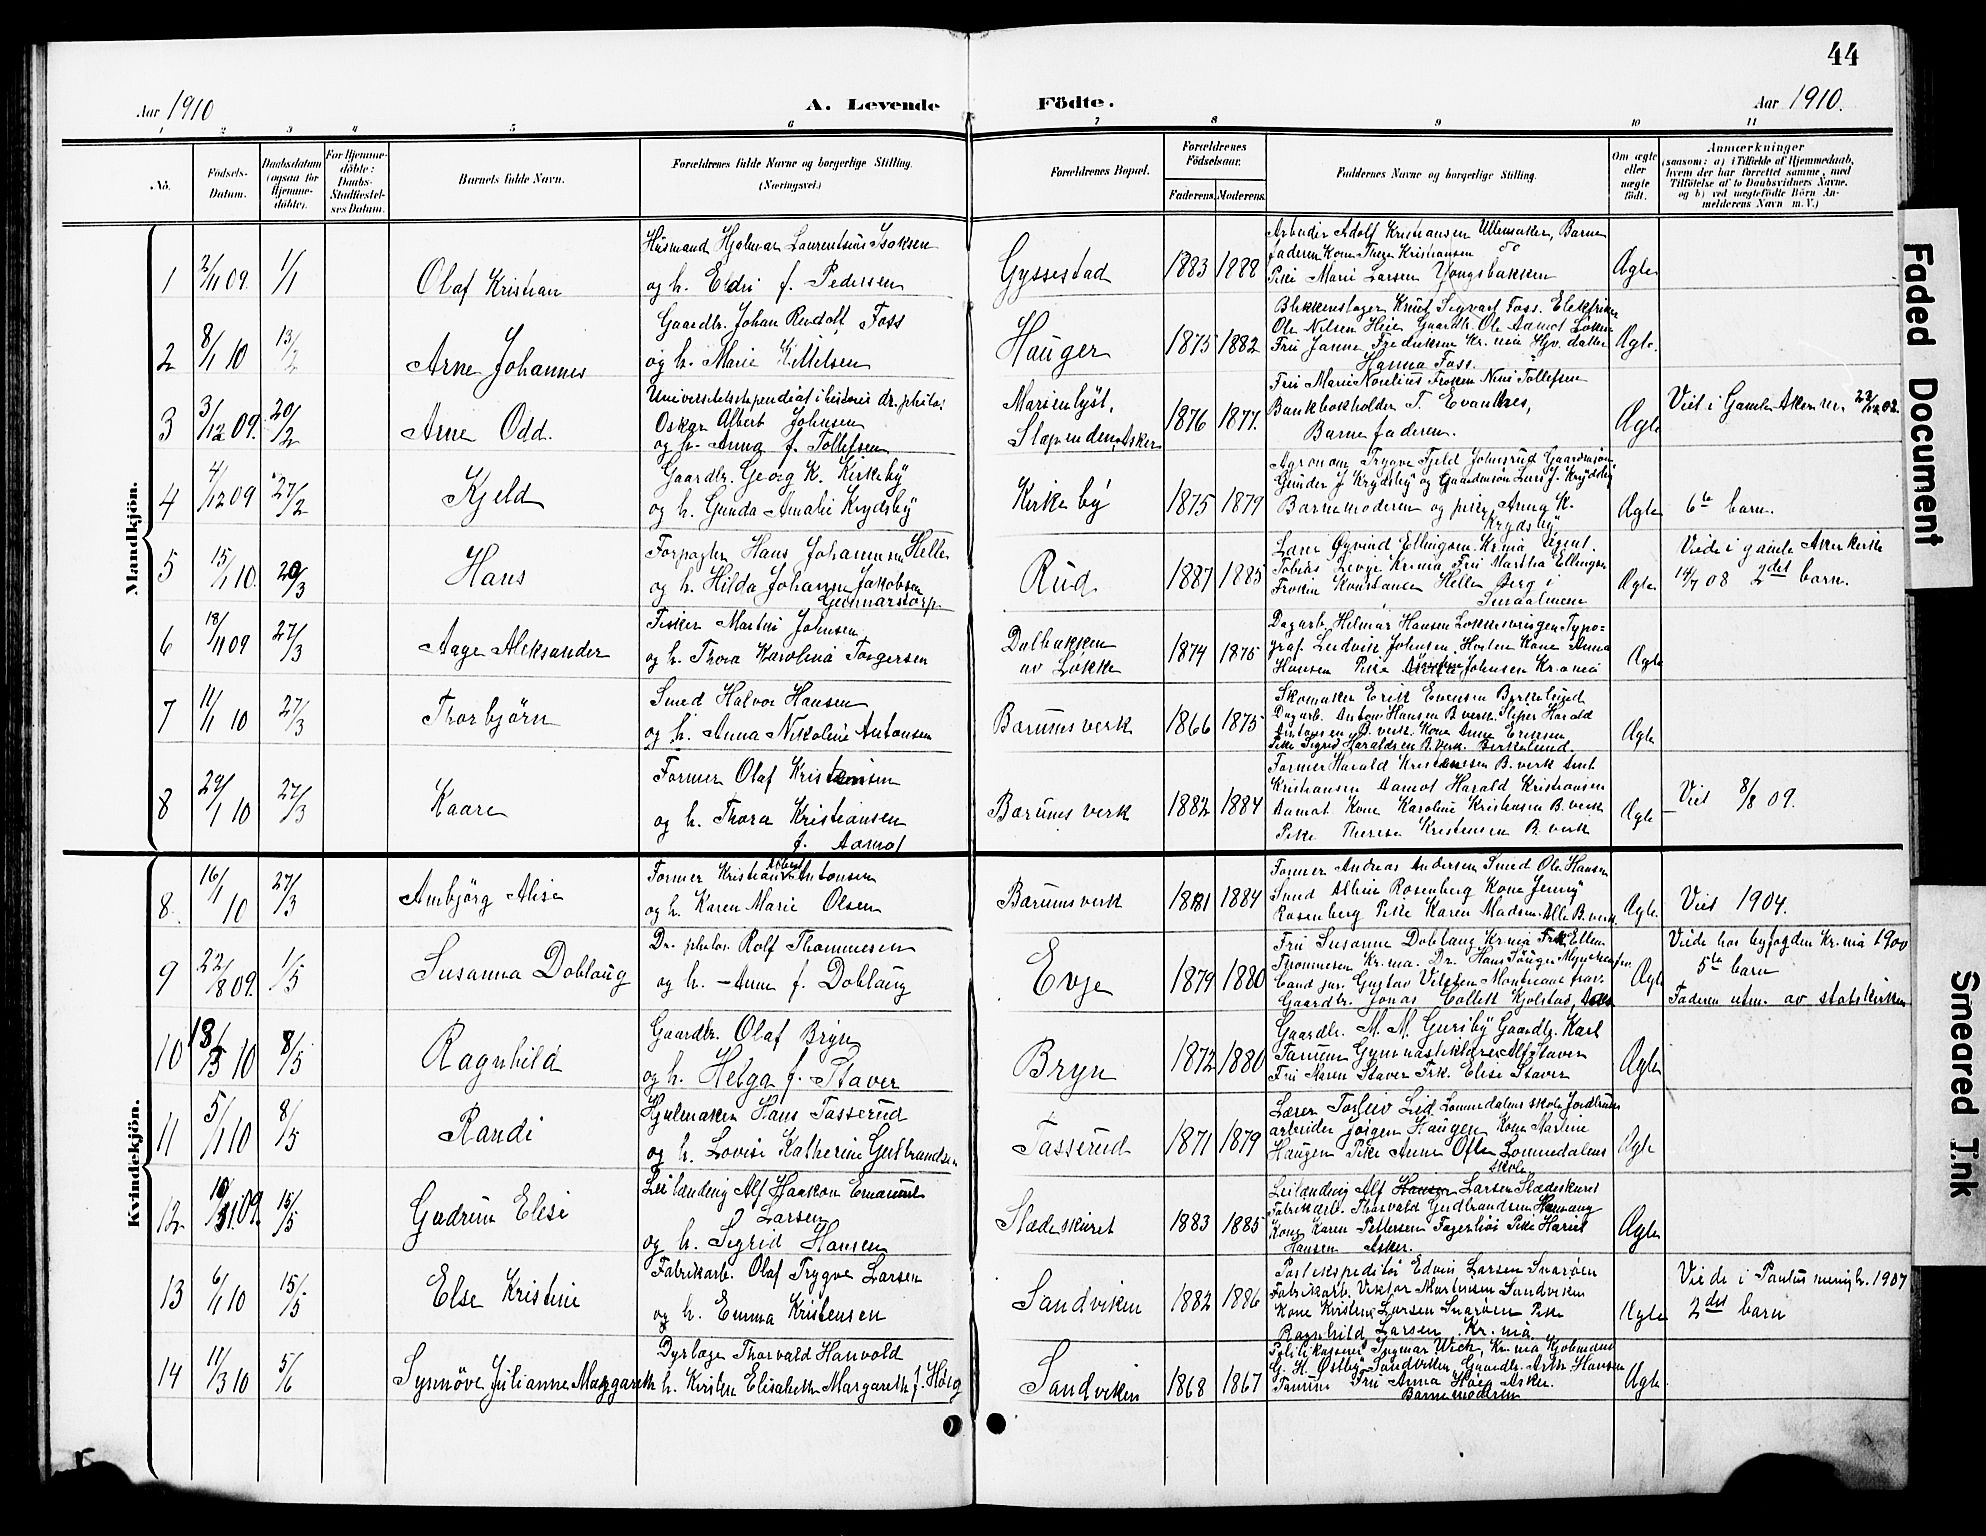 44
Aar 1910
A. Levende Födte.
Aar 1910.
1 2 3 4 5 6 7 8 9 10 11
No.
Födsels-
Datum.
Daabsdatum
(ogsaa for
Hjemme-
döbte).
For Hjemme-
döbte:
Daabs-
Stadfæstel-
ses Datum.
Barnets fulde Navn.
Forældrenes fulde Navne og borgerlige Stilling.
(Næringsvei.)
Forældrenes Bopæl.
Forældrenes
Födselsaar.
Faderens. Moderens.
Faddernes Navne og borgerlige Stilling.
Om ægte
eller
uægte
födt.
Anmærkninger
(saasom: a) i Tilfælde af Hjemmedaab,
hvem der har forrettet samme, med
Tilföielse af to Daabsvidners Navne,
og b) ved uægtefödte Börn An-
melderens Navn m. V.)
Mandkjön.
1 2/11 09. 1/1 Olaf Kristian
Husmand Hjalmar Laurentsius Isaksen
og h. Eldri f. Pedersen
Gyssestad 1883 1888
Arbeider Adolf Kristiansen Ullensaker, Barne
faderen Kone Thea Kristiansen do
Pike Marie Larsen Yongsbakken
Ægte
2 8/1 10 13/2 Arne Johannes
Gaardbr. Johan Rudolf Foss
og h. Marie Kittelsen
Hauger 1875 1882
Blikkenslager Knut Sigvart Foss. Elektriker
Ole Nilsen Heie Gaardbr. Ole Aamot Løkke
Fru Janna Fredriksen Kr.nia Hjv. datter
Hanna Foss.
Ægte.
3 3/12 09. 20/2 Arne Odd.
Universitetsstipendiat i historie dr. philos
Oskar Albert Johnsen
og h. Anna f. Tollefsen
Marienlyst,
Slependen, Asker 1876 1877.
Fru Marie Norelius Frøken Nini Tollefsen
Bankbokholder T. Evankres,
Barnefaderen.
Ægte
Viet i Gamle Aker 22/12 02.
4 4/12 09 27/2 Kjeld
Gaardbr. Georg K. Kirkeby
og h. Gunda Amalie Krydsby
Kirkeby 1875 1879
Agronom Trygve Fjeld Johnsrud Gaardmannsøn
Gunder J Krydsby og Gaardmansøn Lars J. Krydsby
Barnemoderen og pike Anny K.
Krydsby
Ægte 6te barn.
5 15/1 10. 20/3 Hans
Forpagter Hans Johannsen Helle
og h. Hilda Johanne Jakobsen
Gunnarstorp.
Rud 1887 1885
Øyvind Ellingsen Kr.nia
Tobias Kr.nia Fru Martha Ellingsen
Frøken Konstance Helle Berg i
Smaalenene
Ægte
Viede i gamle Aker kirke
14/7 08 2det barn.
6 18/11 09 27/3 Aage Aleksander
Fisker Martin Johnsen
og h. Thora Karolina Torgersen
Dalbakken
av Løkke 1874 1875
Dagarb. Hilmar Hansen Løkkesvingen Typo-
graf Ludvik Johnsen Horten Kone Anna
Hansen Pike Johnsen Kr.a nia
Ægte
7 11/1 10 27/3 Thorbjørn
Smed Halvor Hansen
og h. Anna Nikoline Antonsen
Bærums verk 1866 1875
Skomaker Erik Evensen Berkelund
Dagarb. Anton Hansen B verk. Sliper Harald
Antonsen B. verk. Kone Anne Evensen
Pike Sigrid Haraldsen B. verk. Berkelund.
Ægte
8 29/1 10 27/3 Kaare
Former Olaf Kristensen
og h. Thora Kristiansen
f. Aamot
Bærums verk 1882 1884
Former Harald Kristensen B. verk
Kristiansen Aamot Harald Kristiansen
Aamot Kone Karoline Kristensen B. verk
Pike Therese Kristensen B. verk
Ægte
Viet 8/8 09.
Kvindekjön.
8. 16/1 10 27/3 Anbjørg Alise
Former Kristian Albert Antonsen
og h. Karen Marie Olsen
Bærums verk 1881 1884
Former Andreas Andersen Smed Ole Hansen
Smed Albin Rosenberg Kone Jenny
Rosenberg Pike Karen Madsen. Alle B. verk.
Ægte.
Viet 1904.
9 22/8 09. 1/5 Susanna Doblaug
Dr. philos. Rolf Thommesen
og h. Anne f. Doblaug
Evje 1879 1880
Fru Susanne Doblaug Kr.nia Frk. Ellen
Thommesen Kr.nia. Dr. Hans
Cand jur. Gustav
Gaardbr. Jonas Collett Kjølstad,
Ægte
Viede hos byfogden Kr.nia 1900
5te barn
Faderen utm. av statskirken
10 18/3 10 8/5 Ragnhild
Gaardbr. Olaf Bryn
og h. Helga f. Staver
Bryn 1872 1880
Gaardbr. M. M. Gursby Gaardbr. Karl
Tanum Gymnastiklærer Alf Staver
Fru Maren Staver Frk. Elise Staver
Ægte
11 5/1 10 8/5 Randi
Hjulmaker Hans Tasserud
og h. Lovise Katherine Gulbrandsen
Tasserud 1871 1879
Lærer Torleiv Lid Lommedalens skole Jernbane
arbeider Jørgen Haugen Kone Martine
Haugen Pike Anne Lommedalens
skole
Ægte
12 10/11 09. 15/5 Gudrun Elise
Leilænding Alf Haakon Emanuel
Larsen
og h. Sigrid Hansen
Slædeskuret 1883 1885
Leilænding Alf Hansen Larsen Slædeskuret
Fabrikarb. Thorvald Gudbrandsen Hamang
Kone Karen Pettersen Fagerliøi Pike Harriet
Hansen Asker.
Ægte
13 6/1 10 15/5 Else Kristine
Fabrikarb. Olaf Trygve Larsen
og h. Emma Kristensen
Sandviken 1882 1886
Postekspeditør Edvin Larsen Snarøen
Fabrikarb. Viktor Martinsen Sandviken
Kone Kristine Larsen Snarøen Pike
Ragnhild Larsen Kr.nia.
Ægte
Viede i Paulus menigh. 1907
2det barn
14 11/3 10 5/6 Synnøve Julianne Margareth
Dyrlæge Thorvald Hanvold
h. Kirsten Elisabeth Margareth f. Høeg
Sandviken 1868 1867
Politikasserer Ingmar Wick, Kr.nia Kjøbmand
G. H. Østby Sandviken Gaardbr. Hansen
Tanum Fru Anna Høeg Asker.
Barnemoderen
Ægte
Faded Document
Smeared Ink